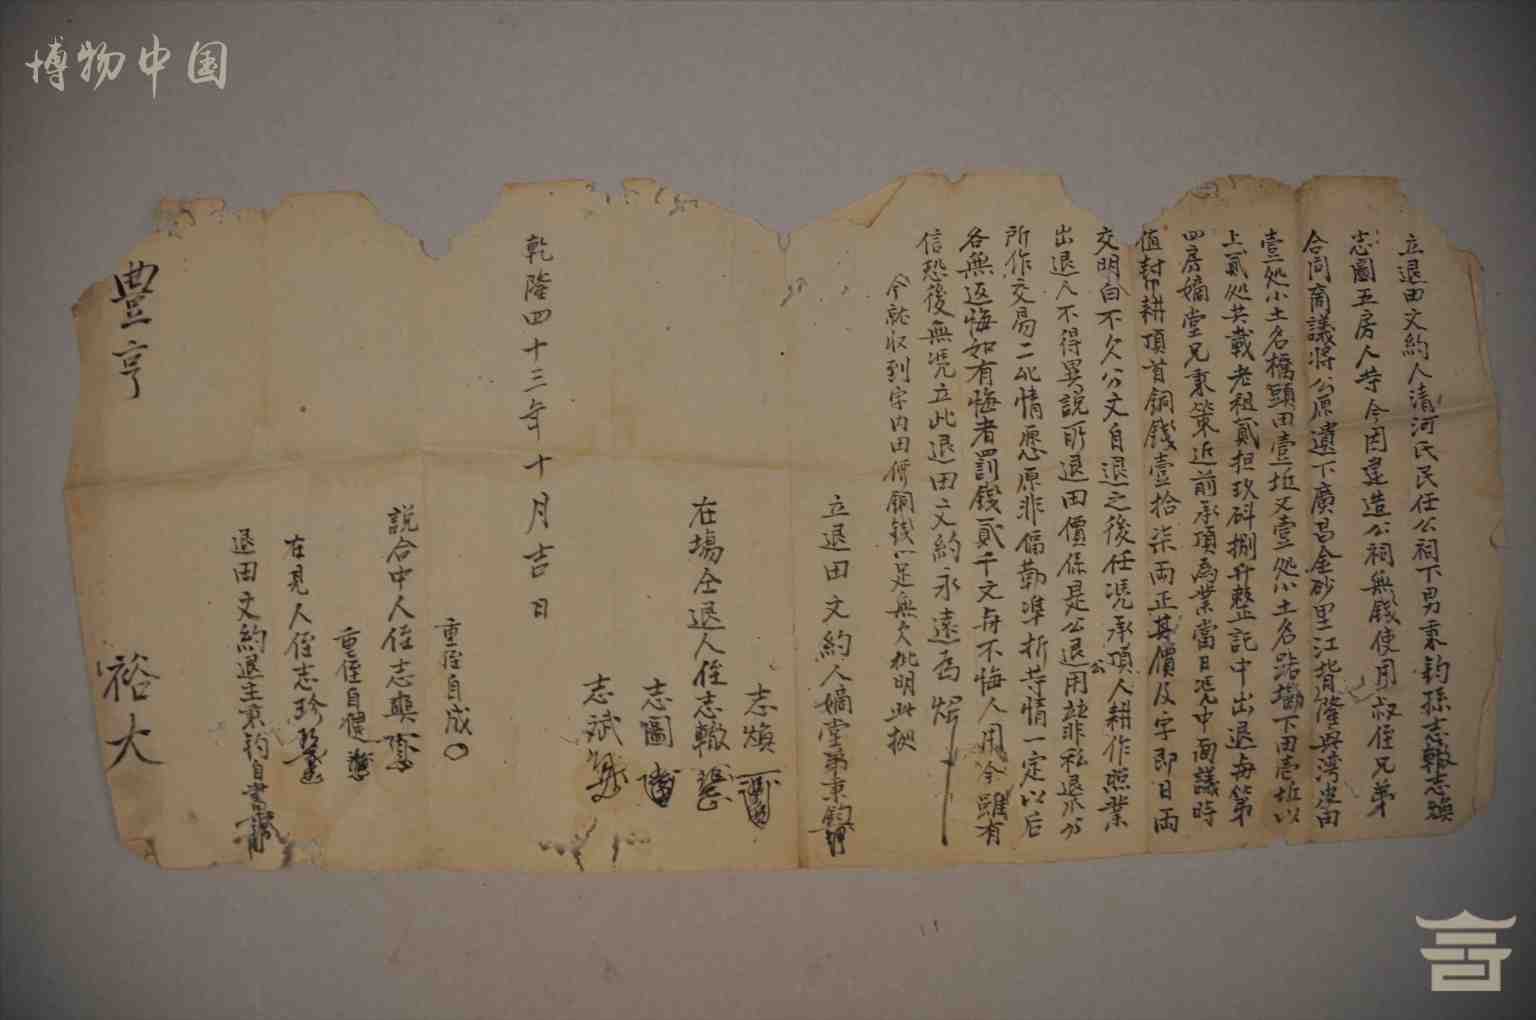 博物中国
立退田文約人清河氏民任公祠下男秉鈞孫志轍志煥
志圖五房人等今因建造公祠無錢使用叔侄兄弟
合同商議將公原遺下廣昌金砂里江背隆興湾坐田
壹处小土名橋頭田壹坵又壹处小土名踏墈下田壱坵以
上貳处共載老租貳担玖斗捌升整託中出退與第
四房嫡堂兄秉策近前承頂為業當日凭中面議時
值封卩耕頂首銅錢壹拾柒両正其價及字即日両
交明白不欠公文自退之後任凭承頂人耕作照業
出退人不得異說所退田價係是公退公用並非私退
所作交易二比情愿原非偪勒準折等情一定以后
各無返悔如有悔者罰錢貳千文與不悔人用今雖有
信恐後無凭立此退田文約永遠為炤
今就收到字内田價銅錢一足無欠批明此據
立退田文約人嫡堂弟秉鈞
志煥
在場仝退人侄志轍
志圖
志斌
乾隆四十三年十月吉日
重侄自成〇
說合中人侄志
重侄自健
在見人侄志珍
退田文約退主秉鈞自書
豊亨
裕大